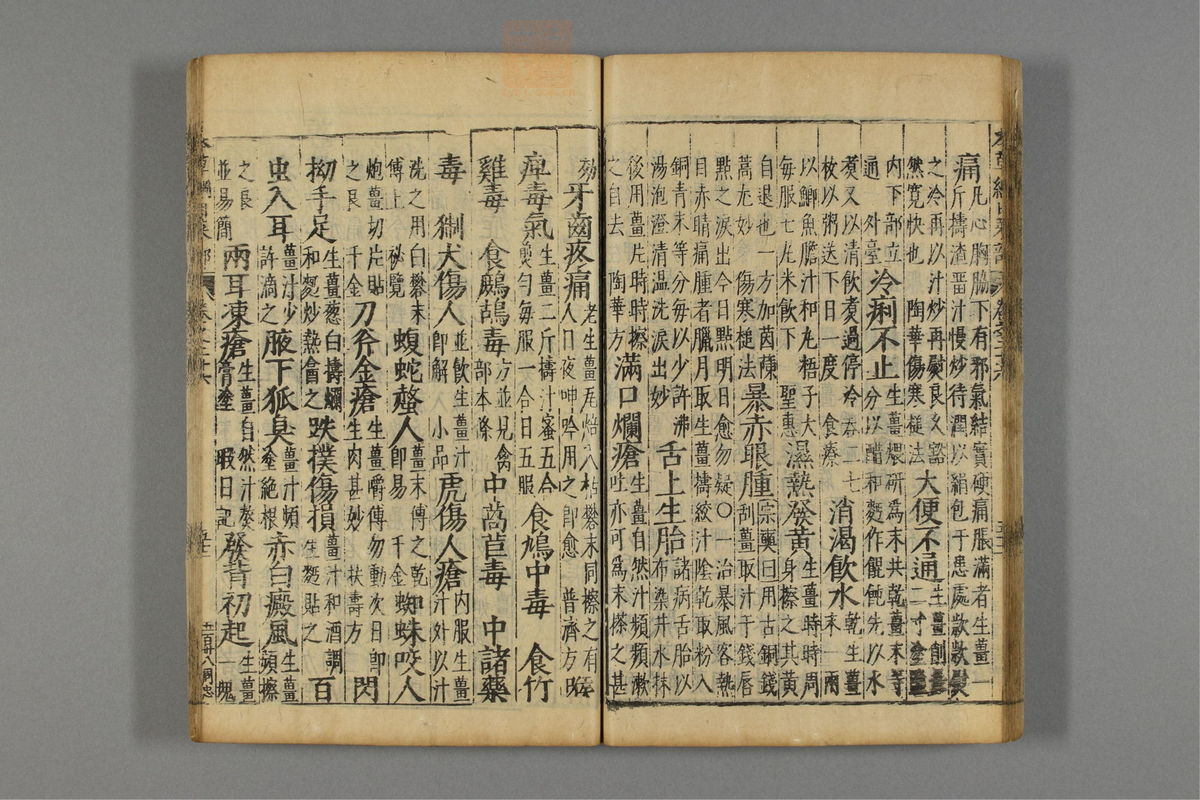 痛凡心胸脇下有邪氣結實硬痛脹滿者生薑一
斤擣渣畱汁慢炒待潤以絹包于患處款款熨
之冷再以汁炒再熨良久豁
然寬快也 陶華傷寒槌法
大便不通生薑削
二寸塗鹽
内下部立
通 外臺
冷痢不止生薑煨研為末共乾薑末等
分以醋和麵作餛飩先以水
煮又以清飲煮過停冷吞二七
枚以粥送下日一度 食療
消渴飲水乾生薑
末一兩
以鯽魚膽汁和丸梧子大
每服七丸米飲下 聖惠
濕熱發黃生薑時時周
身擦之其黃
自退也一方加茵蔯
蒿尤妙 傷寒槌法
暴赤眼腫宗奭曰用古銅錢
刮薑取汁于錢唇
點之淚出今日點明日愈勿疑○一治暴風客熱
目赤睛痛腫者臘月取生薑擣絞汁陰乾取粉入
銅青末等分每以少許沸
湯泡澄清温洗淚出妙
舌上生胎諸病舌胎以
布染井水抹
後用薑片時時擦
之自去 陶華方
滿口爛瘡生薑自然汁頻頻漱
吐亦可為末搽之甚
効
牙齒疼痛老生薑瓦焙入枯礬末同擦之有
人日夜呻吟用之即愈 普濟方
喉
痺毒氣生薑二斤擣汁蜜五合
煎勻每服一合日五服
食鳩中毒 食竹
雞毒 食鷓鴣毒方並見禽
部本條
中萵苣毒 中諸藥
毒 猘犬傷人並飲生薑汁
即解 小品
虎傷人瘡内服生薑
汁外以汁
洗之用白礬末
傅上 秘覽
蝮蛇螫人薑末傅之乾
即易 千金
蜘蛛咬人
炮薑切片貼
之良 千金
刀斧金瘡生薑嚼傅勿動次日即
生肉甚妙 扶壽方
閃
拗手足生薑葱白擣爛
和麵炒熱盦之
跌撲傷損薑汁和酒調
生麵貼之
百
虫入耳薑汁少
許滴之
腋下狐臭薑汁頻
塗絶根
赤白癜風生薑
頻擦
之良
並易簡
兩耳凍瘡生薑自然汁熬
膏塗 暇日記
發背初起生薑
一塊